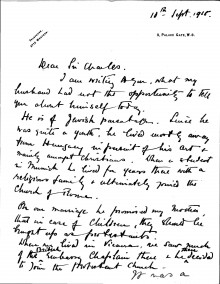 10th Sept. 1915.
3, Palace Gate, W.8.
Dear Sir Charles.
I am writing to you, what my
husband had not the opportunity to tell
you about himself today.
He is of Jewish parentage. Since he
was quite a youth, he lived mostly away
from Hungary in pursuit of his art &
mainly amongst Christians. When a student
in Munich he lived for years there with a
religious family & ultimately joined the
Church of Rome.
On our marriage he promised my Mother
that in case of Children, they should be
brought up as protestants.
When we lived in Vienna, we saw much
of the British Embassy Chaplain there & he decided
to join the Protestant Church.
It was a